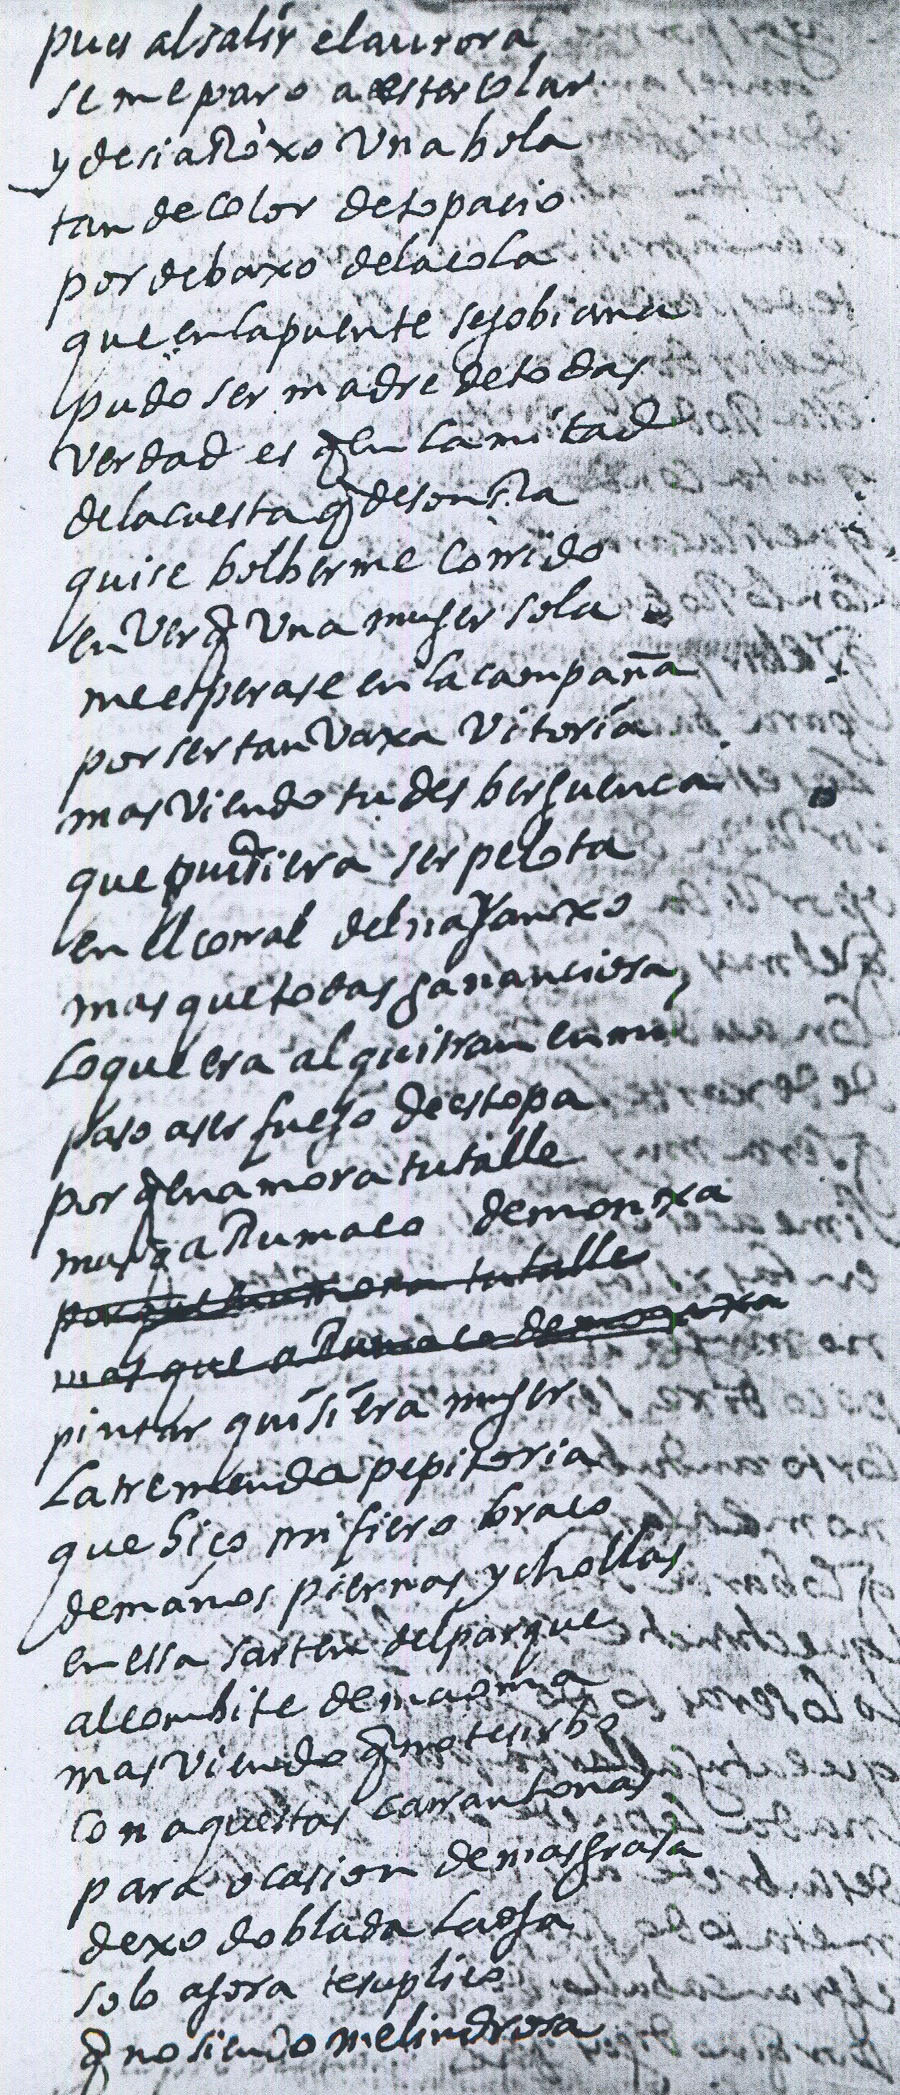 pues al salir el aurora
se me paro a estercolar
y desia Roxo Una bola
tan de color de topacio
por debaxo de la cola
que en la puente segobiana
pudo ser madre de todas
Verdad es q̃ en la mitad
de la cuesta q̃
quise bolberme Corrido
en Ver q̃ Una muger sola
me esperase en la campaña
por ser tan Vaxa Vitoria
mas Viendo tu desberguença
que pudiera ser pelota
en ll corral del naranxo
mas que todas gananciosa
lo que era alquitran en mi
paso a ser fuego de estopa
por q̃ enamora tu talle
mas q̃ a Rumaco de monxa
por que enamora tu talle
mas que a Rumaco de monxa
pintar quisiera muger
La tremenda pepitoria
que hiço mi fiero braco
de manos piernas y chollas
en essa sarten del parque
al combite de
mas Viendo q̃ no te sirbo
Con aquestas carrantoñas
para ocasion de mas grasa
dexo doblada la oja
solo agora te suplico
q̃ no siendo melindrosa